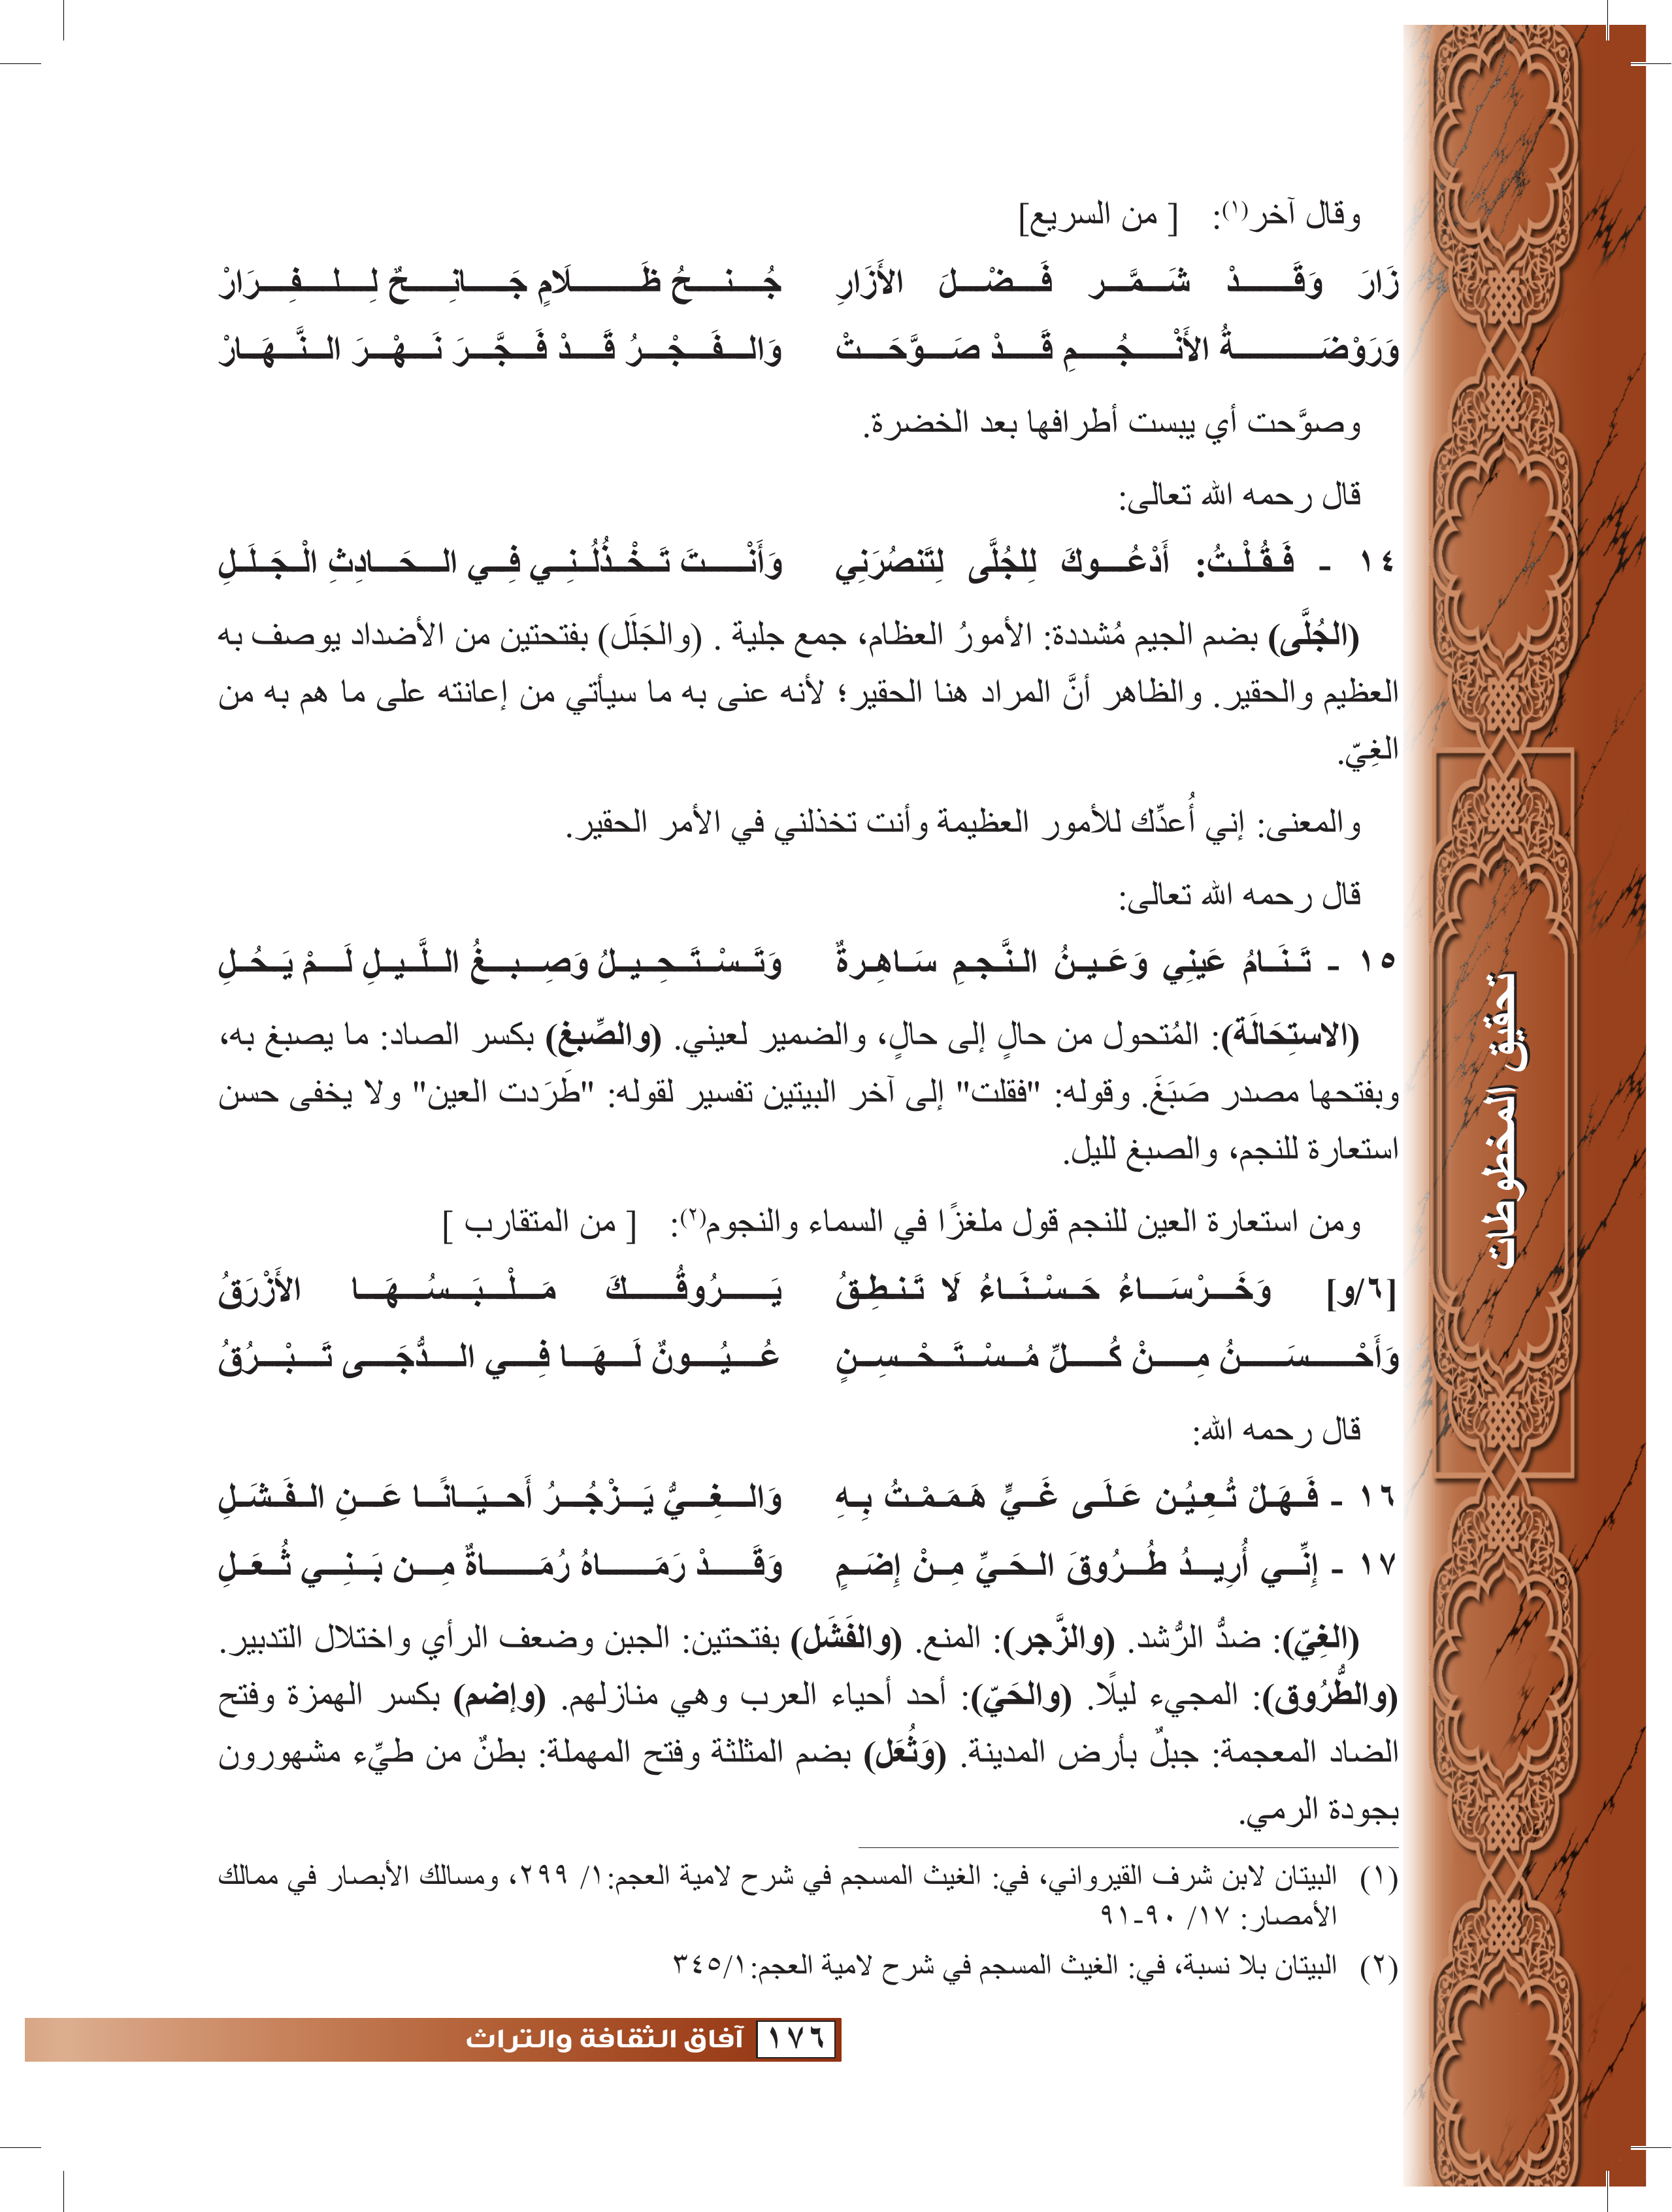 وقال آخر(١): [ من السريع]
زَارَ وَقَدْ شَمَّر فَضْلَ الأَزَارِ جُنحُ ظَلَامٍ جَانِحٌ لِلفِرَارْ
وَرَوْضَةُ الأَنْجُمِ قَدْ صَوَّحَتْ وَالفَجْرُ قَدْ فَجَّرَ نَهْرَ النَّهَارْ
وصوَّحت أي يبست أطرافها بعد الخضرة.
قال رحمه الله تعالى:
١٤ - فَقُلْتُ: أَدْعُوكَ لِلجُلَّى لِتَنصُرَنِي وَأَنْتَ تَخْذُلُنِي فِي الحَادِثِ الْجَلَلِ
(الجُلَّى) بضم الجيم مُشددة: الأمورُ العظام، جمع جلية . (والجَلَل) بفتحتين من الأضداد يوصف به
العظيم والحقير. والظاهر أنَّ المراد هنا الحقير؛ لأنه عنى به ما سيأتي من إعانته على ما هم به من
الغِيّ.
والمعنى: إني أُعدِّك للأمور العظيمة وأنت تخذلني في الأمر الحقير.
قال رحمه الله تعالى:
١٥ - تَنَامُ عَينِي وَعَينُ النَّجمِ سَاهِرةٌ وَتَسْتَحِيلُ وَصِبغُ اللَّيلِ لَمْ يَحُلِ
(الاستِحَالَة): المُتحول من حالٍ إلى حالٍ، والضمير لعيني. (والصِّبغ) بكسر الصاد: ما يصبغ به،
وبفتحها مصدر صَبَغَ. وقوله: "فقلت" إلى آخر البيتين تفسير لقوله: "طَرَدت العين" ولا يخفى حسن
استعارة للنجم، والصبغ لليل.
ومن استعارة العين للنجم قول ملغزًا في السماء والنجوم(٢): [ من المتقارب ]
[٦/و] وَخَرْسَاءُ حَسْنَاءُ لَا تَنطِقُ يَرُوقُكَ مَلْبَسُهَا الأَزْرَقُ
وَأَحْسَنُ مِنْ كُلِّ مُسْتَحْسِنٍ عُيُونٌ لَهَا فِي الدُّجَى تَبْرُقُ
قال رحمه الله:
١٦ - فَهَلْ تُعِيُن عَلَى غَيٍّ هَمَمْتُ بِهِ وَالغِيُّ يَزْجُرُ أَحيَانًا عَنِ الفَشَلِ
١٧ - إِنِّي أُرِيدُ طُرُوقَ الحَيِّ مِنْ إِضَمٍ وَقَدْ رَمَاهُ رُمَاةٌ مِن بَنِي ثُعَلِ
(الغِيّ): ضدُّ الرُّشد. (والزَّجر): المنع. (والفَشَل) بفتحتين: الجبن وضعف الرأي واختلال التدبير.
(والطُّرُوق): المجيء ليلًا. (والحَيّ): أحد أحياء العرب وهي منازلهم. (وإضم) بكسر الهمزة وفتح
الضاد المعجمة: جبلٌ بأرض المدينة. (وَثُعَل) بضم المثلثة وفتح المهملة: بطنٌ من طيِّء مشهورون
بجودة الرمي.
(١) البيتان لابن شرف القيرواني، في: الغيث المسجم في شرح لامية العجم:١/ ٢٩٩، ومسالك الأبصار في ممالك
الأمصار: ١٧/ ٩٠-٩١
(٢) البيتان بلا نسبة، في: الغيث المسجم في شرح لامية العجم:٣٤٥/١
١٧٦ آفاق الثقافة والتراث
تحقيق المخطوطات